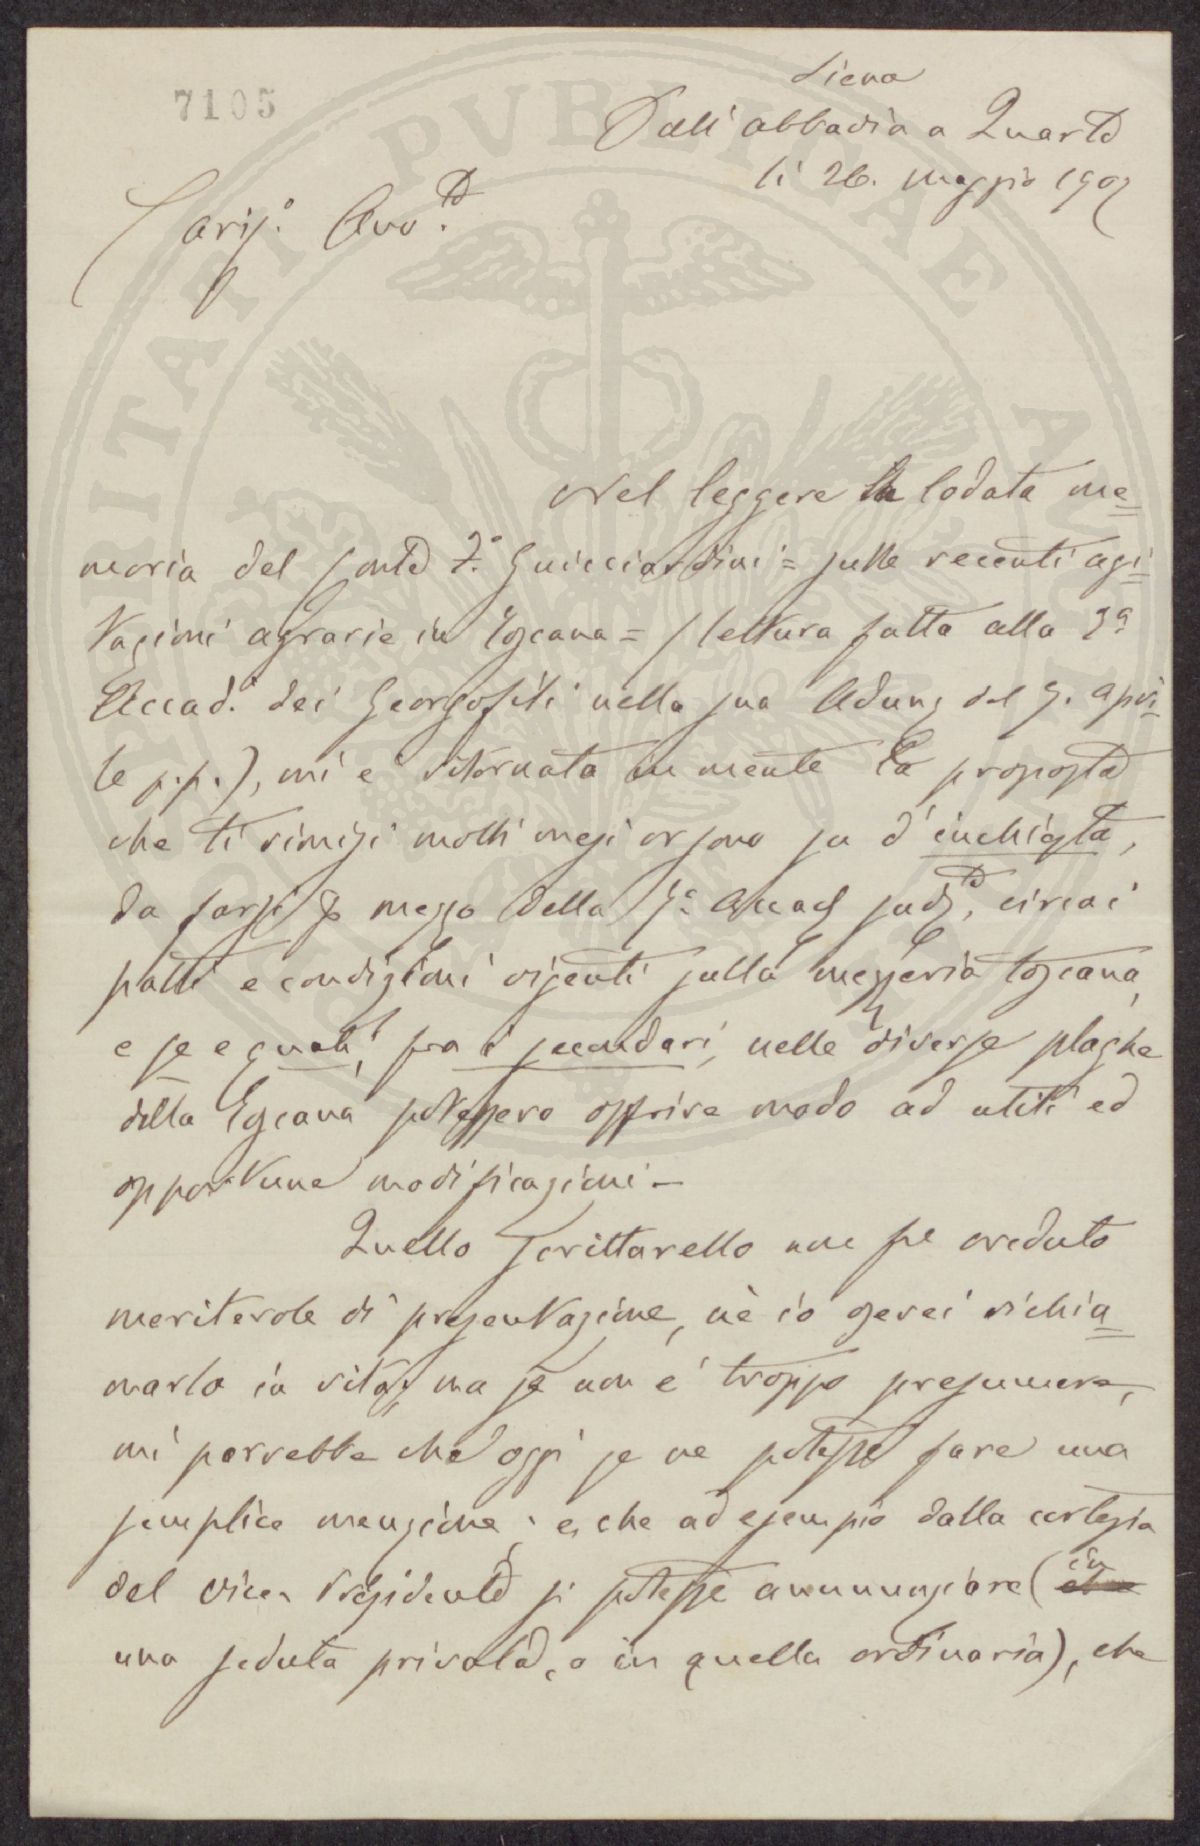 7105
Siena
Dall'abbadia a Quarto
li 26. Maggio 1907
Cariss.° Avv.to
Nel leggere la lodata me=
moria del Conte F.° Guicciardini = sulle recenti agi=
tazioni agrarie in Toscana = (lettura fatta alla Rª
Accad.ª dei Georgofili nella sua Adunz del 7. apri=
le p.p.), mi è ritornata in mente la proposta
che ti rimisi molti mesi or sono su d'inchiesta,
da farsi per mezzo della Rª Accad sudd.ta, circa i
patti e condizioni vigenti sulla mezzeria toscana,
e se e quali, fra i secondari, nelle diverse plaghe
della Toscana potessero offrire modo ad utili ed
opportune modificazioni –
Quello scrittarello non fu creduto
meritevole di presentazione, nè io oserei richia=
marlo in vita, ma se non è troppo presumere,
mi parrebbe che oggi se ne potesse fare una
semplice menzione; e, che ad esempio dalla cortesia
del Vice-Presidente si potesse annunziare (in
una seduta privata, o in quella ordinaria), che
PVBLICAE